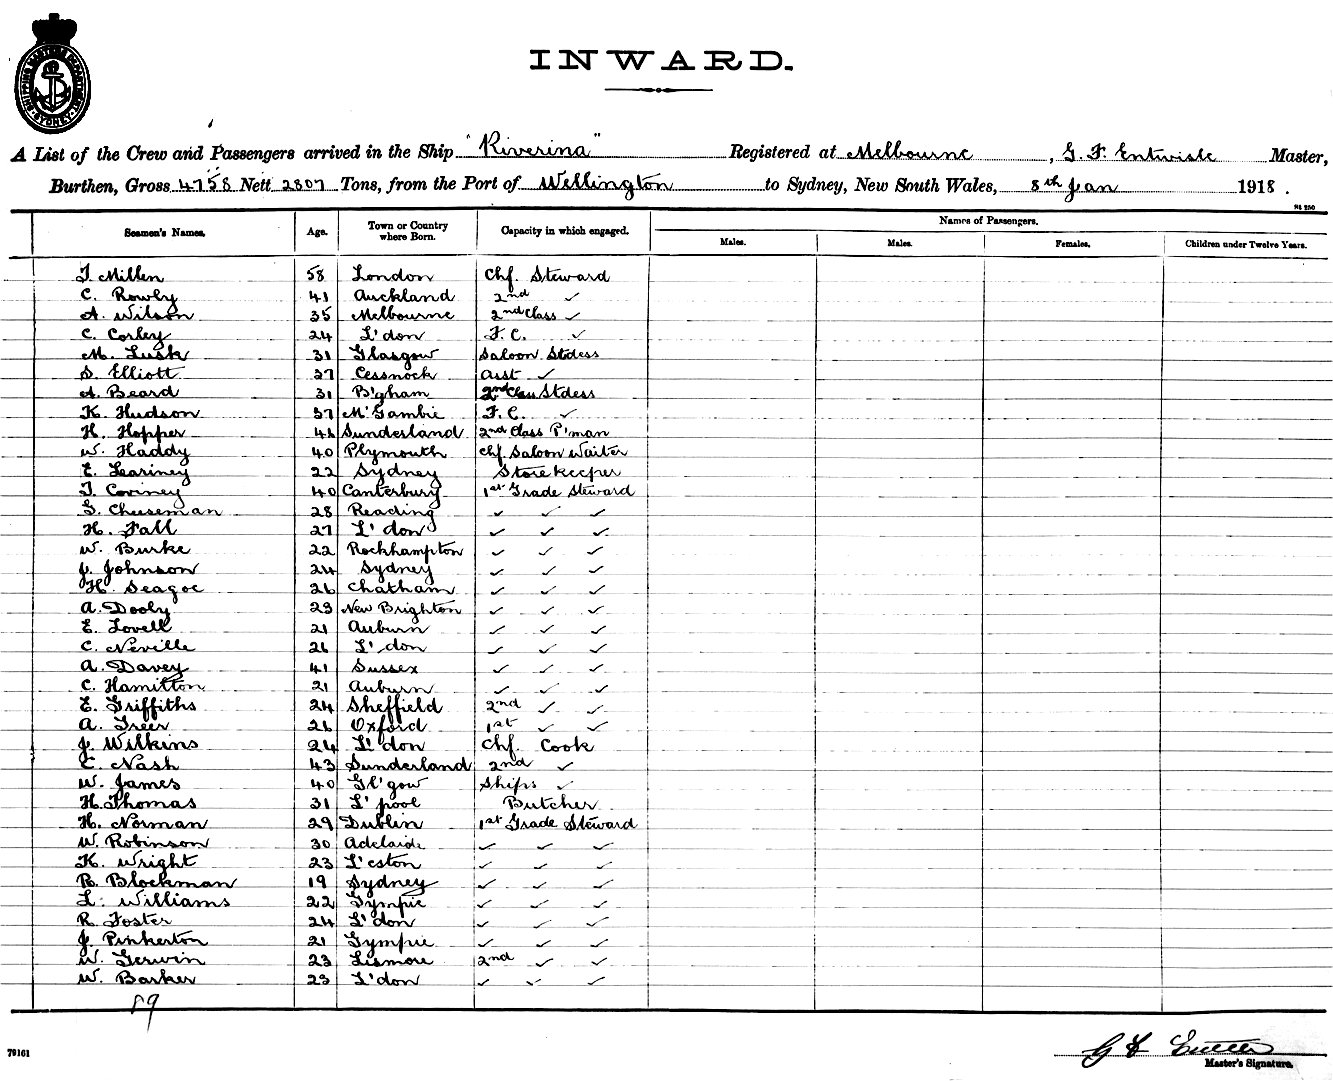 SHIPPING MASTERS DEPARTMENT SYDNEY
INWARD.
A List of the Crew and Passengers arrived in the Ship "Riverina" Registered at Melbourne, G. F. Entwisle Master,
Burthen, Gross 4758 Nett 2807 Tons, from the Port of Wellington to Sydney, New South Wales, 8th Jan 1918.
Seamen's Names. Age. Town or Country where Born. Capacity in which engaged. Names of Passengers.
Males. Males. Females. Children under Twelve Years.
T. Millen 58 London Chf. Steward
C. Rowly 41 Auckland 2nd ✓
A. Wilson 35 Melbourne 2nd Class ✓
C. Corley 24 L'don F.C. ✓
M. Lusk 31 Glasgow Saloon Stdess
S. Elliott 37 Cessnock Asst ✓
A. Beard 31 B'gham 2nd Class Stdess
K. Hudson 37 Mt Gambie F.C. ✓
H. Hopper 46 Sunderland 2nd Class P'man
W. Haddy 40 Plymouth Chf Saloon Waiter
E. Leariney 22 Sydney Storekeeper
T. Coviney 40 Canterbury 1st Grade Steward
G. Cheeseman 28 Reading ✓ ✓ ✓
H. Fall 27 L'don ✓ ✓ ✓
W. Burke 22 Rockhampton ✓ ✓ ✓
J. Johnson 24 Sydney ✓ ✓ ✓
H. Seagoe 26 Chatham ✓ ✓ ✓
A. Dooly 23 New Brighton ✓ ✓ ✓
E. Lovell 21 Auburn ✓ ✓ ✓
C. Neville 26 L'don ✓ ✓ ✓
A. Davey 41 Sussex ✓ ✓ ✓
C. Hamilton 21 Auburn ✓ ✓ ✓
E. Griffiths 24 Sheffield 2nd ✓ ✓
A. Greer 26 Oxford 1st ✓ ✓
J. Wilkins 24 L'don Chf. Cook
C. Nash 43 Sunderland 2nd ✓
W. James 40 Gl'gow Ships ✓
H. Thomas 31 L'pool Butcher
H. Norman 29 Dublin 1st Grade Steward
W. Robinson 30 Adelaide ✓ ✓ ✓
K. Wright 23 L'eston ✓ ✓ ✓
R. Blockman 19 Sydney ✓ ✓ ✓
L. Williams 22 Gympie ✓ ✓ ✓
R. Foster 24 L'don ✓ ✓ ✓
J. Pinkerton 21 Gympie ✓ ✓ ✓
W. Gerwin 23 Lismore 2nd ✓ ✓
W. Barker 23 L'don ✓ ✓ ✓
89
79161
Master's Signature.